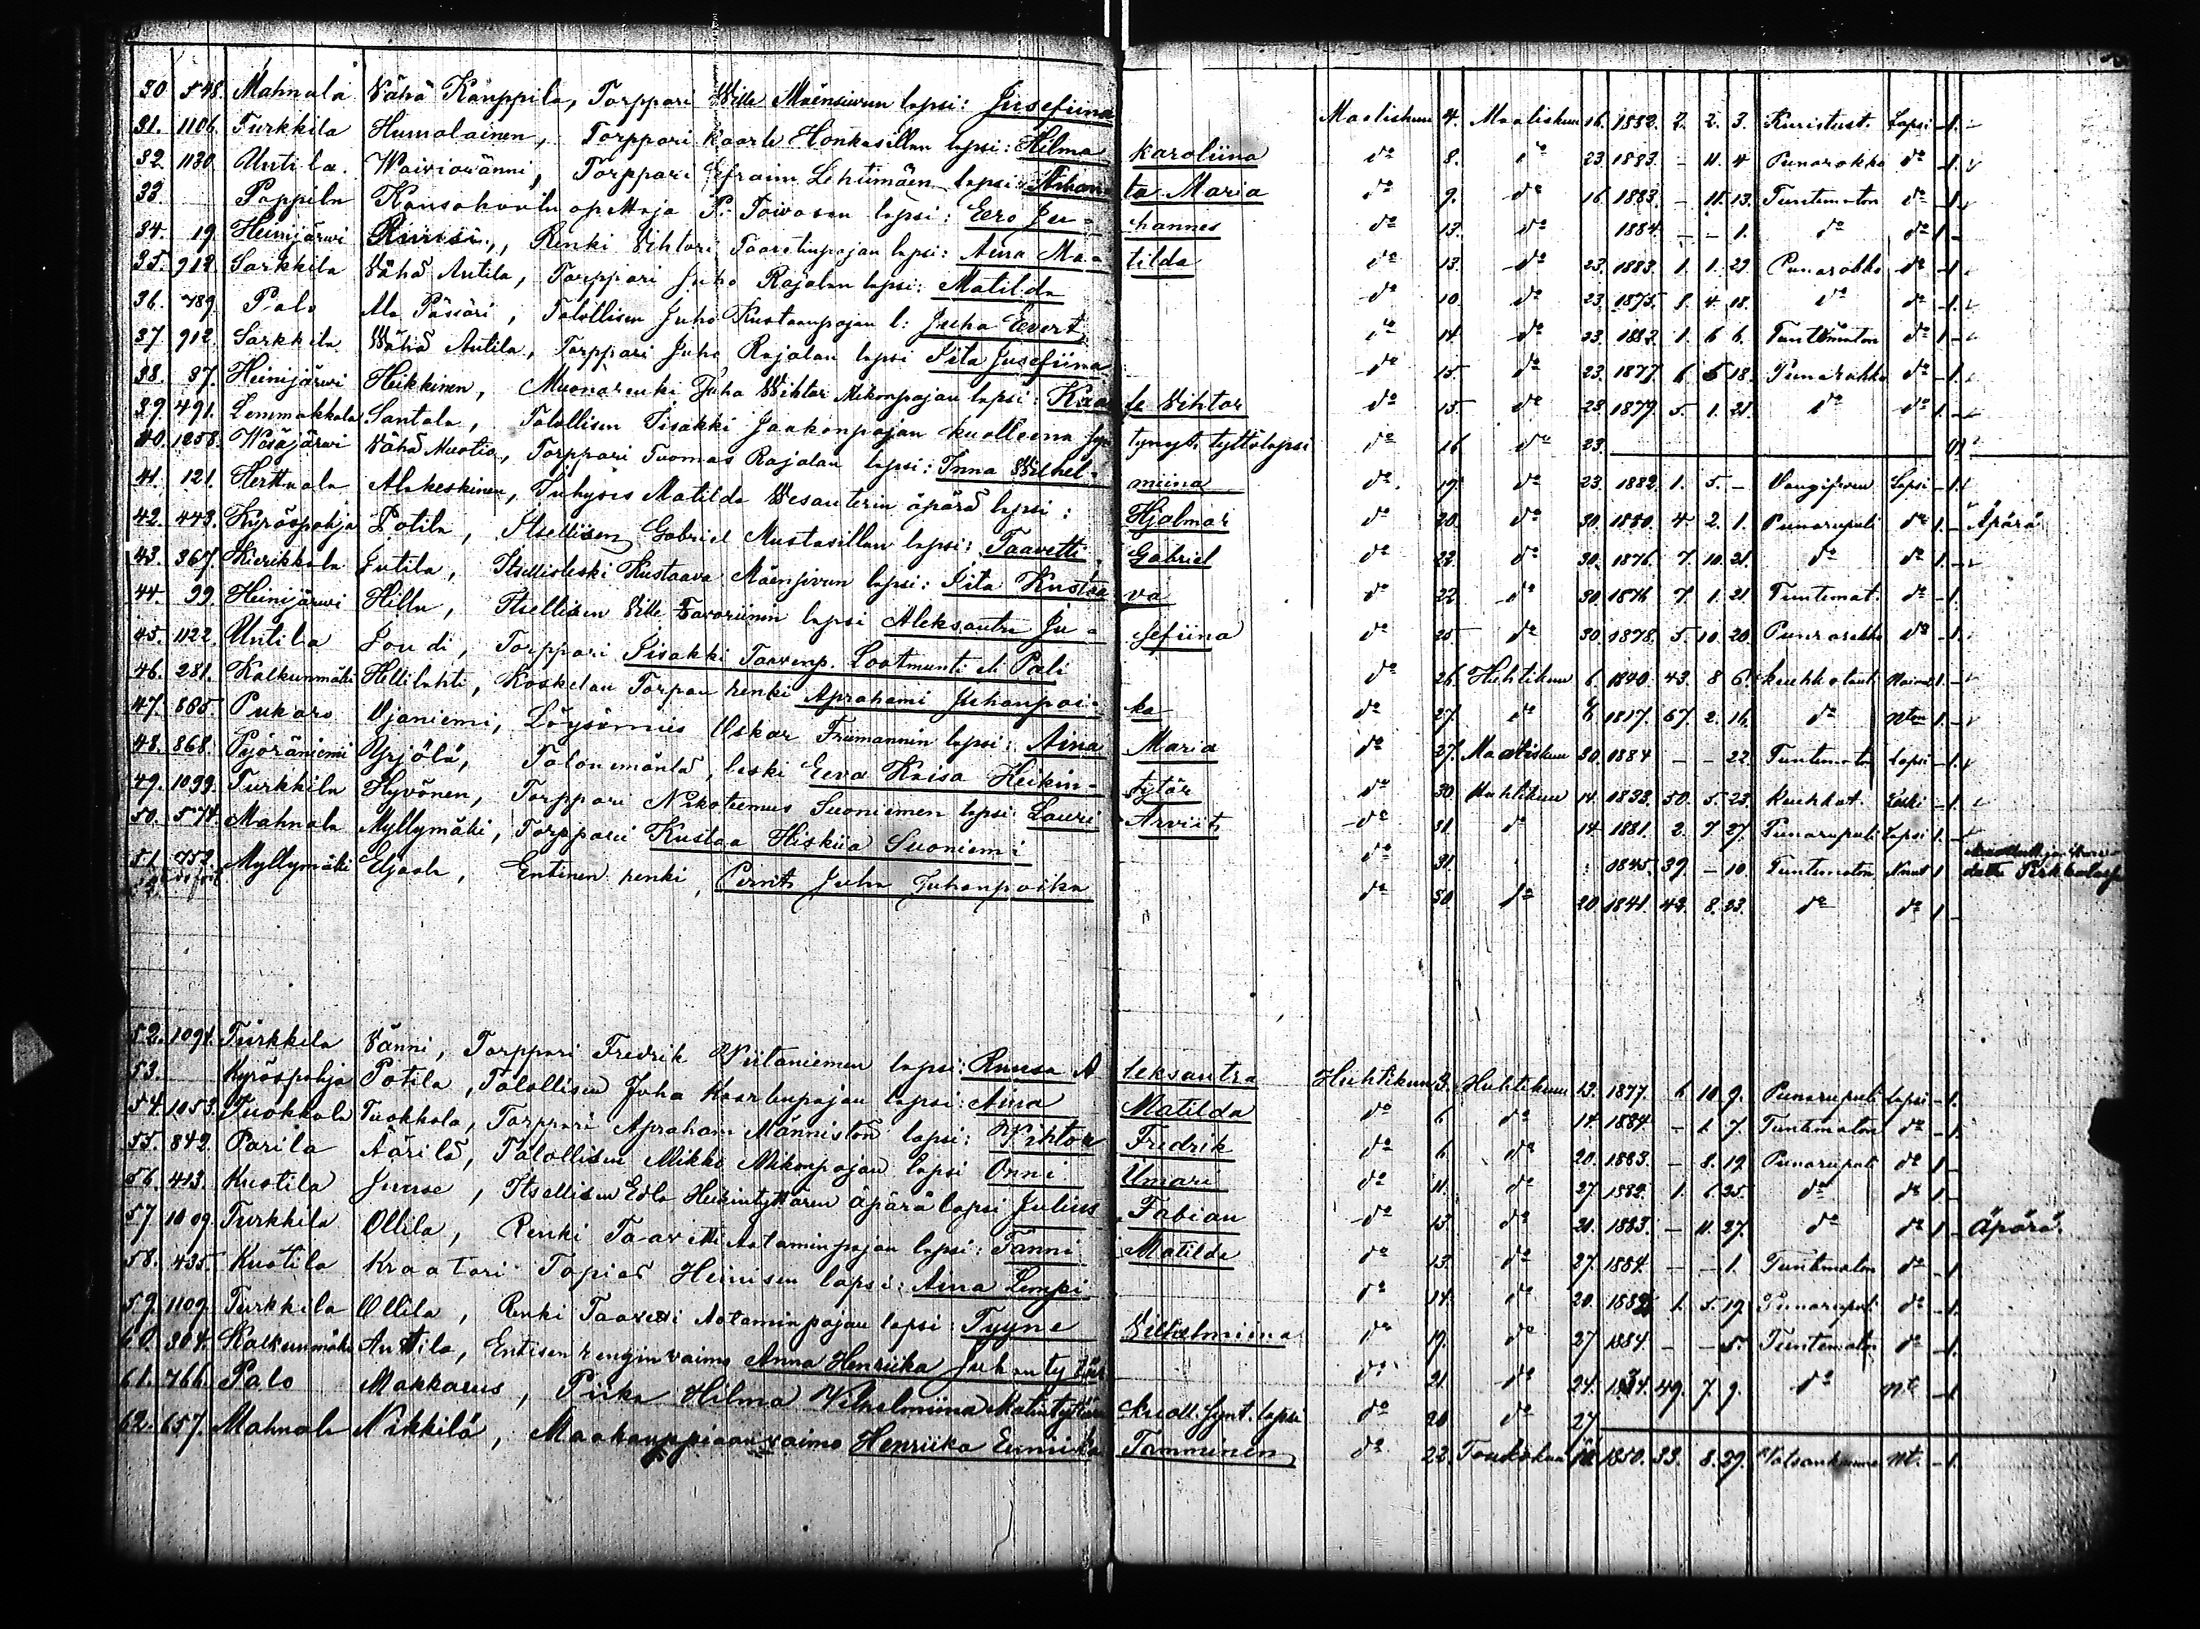 30 548. Mahnala Vähä Känppilä, Torppari Wille Mäensivun lapsi: Josefiina Maaliskuu 4. Maaliskuu 16. 1882. 2. 2. 3. Kuristust. Lapsi 1.
31. 1106. Turkkila Humalainen, Torppari Kaarle Honkasillan lapsi: Hilma Karoliina do 8. do 23. 1883. - 11. 4 Punarokko do 1.
32. 1130. Untila Torppari Efraim Lehtimäen lapsi: ta Maria do 9. do 16. 1883. - 11. 13. Tuntematon do 1.
33 Pappila Kansakoulu opettaja P. Toivosen lapsi: Eero Ju- hannes do 13. do 1884. - - 1. do do 1
34. 19. Heinijärwi Renki Vihtori lapsi: Aina Ma- tilda do 13. do 23. 1883. 1. 1. 29 Punarokko do 1.
35. 912. Sarkkila Vähä Antila, Torppari Juho Rajalan lapsi: Matilda do 10. do 23. 1875. 8. 4. 18. do do 1.
36. 789. Palo Ala Pässäri, Talollisen Juho Kustaanpojan l: Juha Eevert do 14. do 23. 1882. 1. 6 6. Tuntematon do 1
37 912. Sarkkila Wähä Antila, Torppari Juho Rajalan lapsi Iita Josefiina do 15. do 23. 1877. 6. 5 18. Punarokko do 1.
38. 37. Heinijärwi Heikkinen, Muonarenki Juha Wihtor Mikonpojan lapsi: Kaa le Vihtor do 15. do 23. 1879. 5. 1. 21. do do 1
39. 491. Lemmakkala Santala, Talollisen Iisakki Jaakonpojan kuolleena syn tynyt tyttölapsi do 16 do 23.
40. 1258. Wäsäjärwi Vähä Muotio, Torppari Tuomas Rajalan lapsi: Inna Wilhel- miina do 19. do 23. 1882. 1. 5. - Lapsi 1.
41. 121. Herttuala Alakeskinen, Matilda Wesanterin äpärä lapsi: Hjalmar do 20. do 30. 1880. 4 2. 1. Punarupuli do 1. Äpärä
42. 443. Kyröspohja Potila, Itsellisen Gabriel Mustasillan lapsi: Taavetti Gabriel do 22. do 30. 1876. 7 10. 21. do do 1.
43. 367. Kierikkala Jutila, Itsellisleski Kustaava Mäensivun lapsi: Iita Kustaa va do 22 do 30. 1876 7 1. 21 Tuntemat. do 1.
44. 39. Heinijärwi Hillu, Itsellisen Wille Favoriinin lapsi Aleksantra Jo- sefiina do 25 do 30. 1878. 5. 10. 20. Punarokko do 1.
45. 1122. Untila Joudi, Torppari Iisakki Taavinp. Lootmunti eli Pali do 26. Huhtikuu 6. 1840. 43. 8 6. keuhkotaut 1.
46. 281. Kalkunmäki Hellilahti, Koskelan Torpan renki Aprahami Juhanpoi- ka do 27. do 6 1817. 67. 2. 16. do 1.
47. 865. Pukara Ojaniemi, Löysämies Oskar Friimannin lapsi: Aina Maria do 27. Maaliskuu 30. 1884 - - 22. Tuntematon Lapsi 1.
48. 868. Pyöräniemi Yrjölä, Talonemäntä, leski Eeva Kaisa Heikin- tytär do 30. Huhtikuu 14. 1833. 50. 5. 23. Keuhkot. Leski 1.
49. 1099. Turkkila Hyvönen, Torppari Nikotemus Suoniemen lapsi: Lauri Arviit do 31. do 14 1881. 2. 7 27. Punarupuli Lapsi 1.
50. 574. Mahnala Myllymäki, Torppari Kustaa Hiskiia Suoniemi do 31. 1845. 39. - 10. Tuntematon 1
51. 752. Myllymäki Eljaala, Entinen renki, Juha Juhanpoika do 30. do 20. 1841. 42. 8. 23. do do 1
52. 1094. Turkkila Vänni, Torppari Fredrik Wiitaniemen lapsi: Ruusa A leksantra Huhtikuu 3. Huhtikuu 13. 1877. 6 10. 9. Punarupuli Lapsi 1.
53. Kyröspohja Potila, Talollisen Juho Kaarlenpojan lapsi: Aina Matilda do 6 do 14. 1884 - 1. 7. Tuntematon do 1.
54. 1053. Tuokkola Tuokkola, Torppari Apraham Männistön lapsi: Vihtor Fredrik do 6 do 20. 1883. - 8. 19. Punarupuli do 1
55. 842. Parila Äärilä, Talollisen Mikko Mikonpojan lapsi Onni Ilmari do 11. do 27. 1882. 1. 6. 25. do do 1
56. 413. Kuotila Juuse, Itsellisen Edla Heikintyttären äpärä lapsi Julius Fabian do 15. do 21. 1883. - 11. 27. do do 1 Äpärä.
57 1109. Turkkila Ollila, Renki Taavetti Aataminpojan lapsi: Fanni Matilda do 13. do 27. 1884. - - 1. Tuntematon do 1
58. 435. Kuotila Kraatari Topias Heinisen lapsi: Aina Lempi do 14. do 20. 1882 1. 5. 19. Punarupuli do 1.
59. 1109. Turkkila Ollila, Renki Taavetti Aataminpojan lapsi: Tyyne Vilhelmiina do 19. do 27 1884. - - 5. Tuntematon do 1.
60. 304. Kalkunmäki Anttila, Entisen renginvaimo Anna Henriika Juhantytär do 21. do 24. 1834. 49. 7 9. do nt. 1
61. 766. Palo Makkarus, Piika Hilma Vilhelmiina Matintyttären kuoll. synt. lapsi do 20 do 27
62. 657. Mahnala Nikkilä, Maakauppiaan vaimo Henriika Tamminen do 22. Toukokuu 1850. 33. 8. 29. nt. 1.